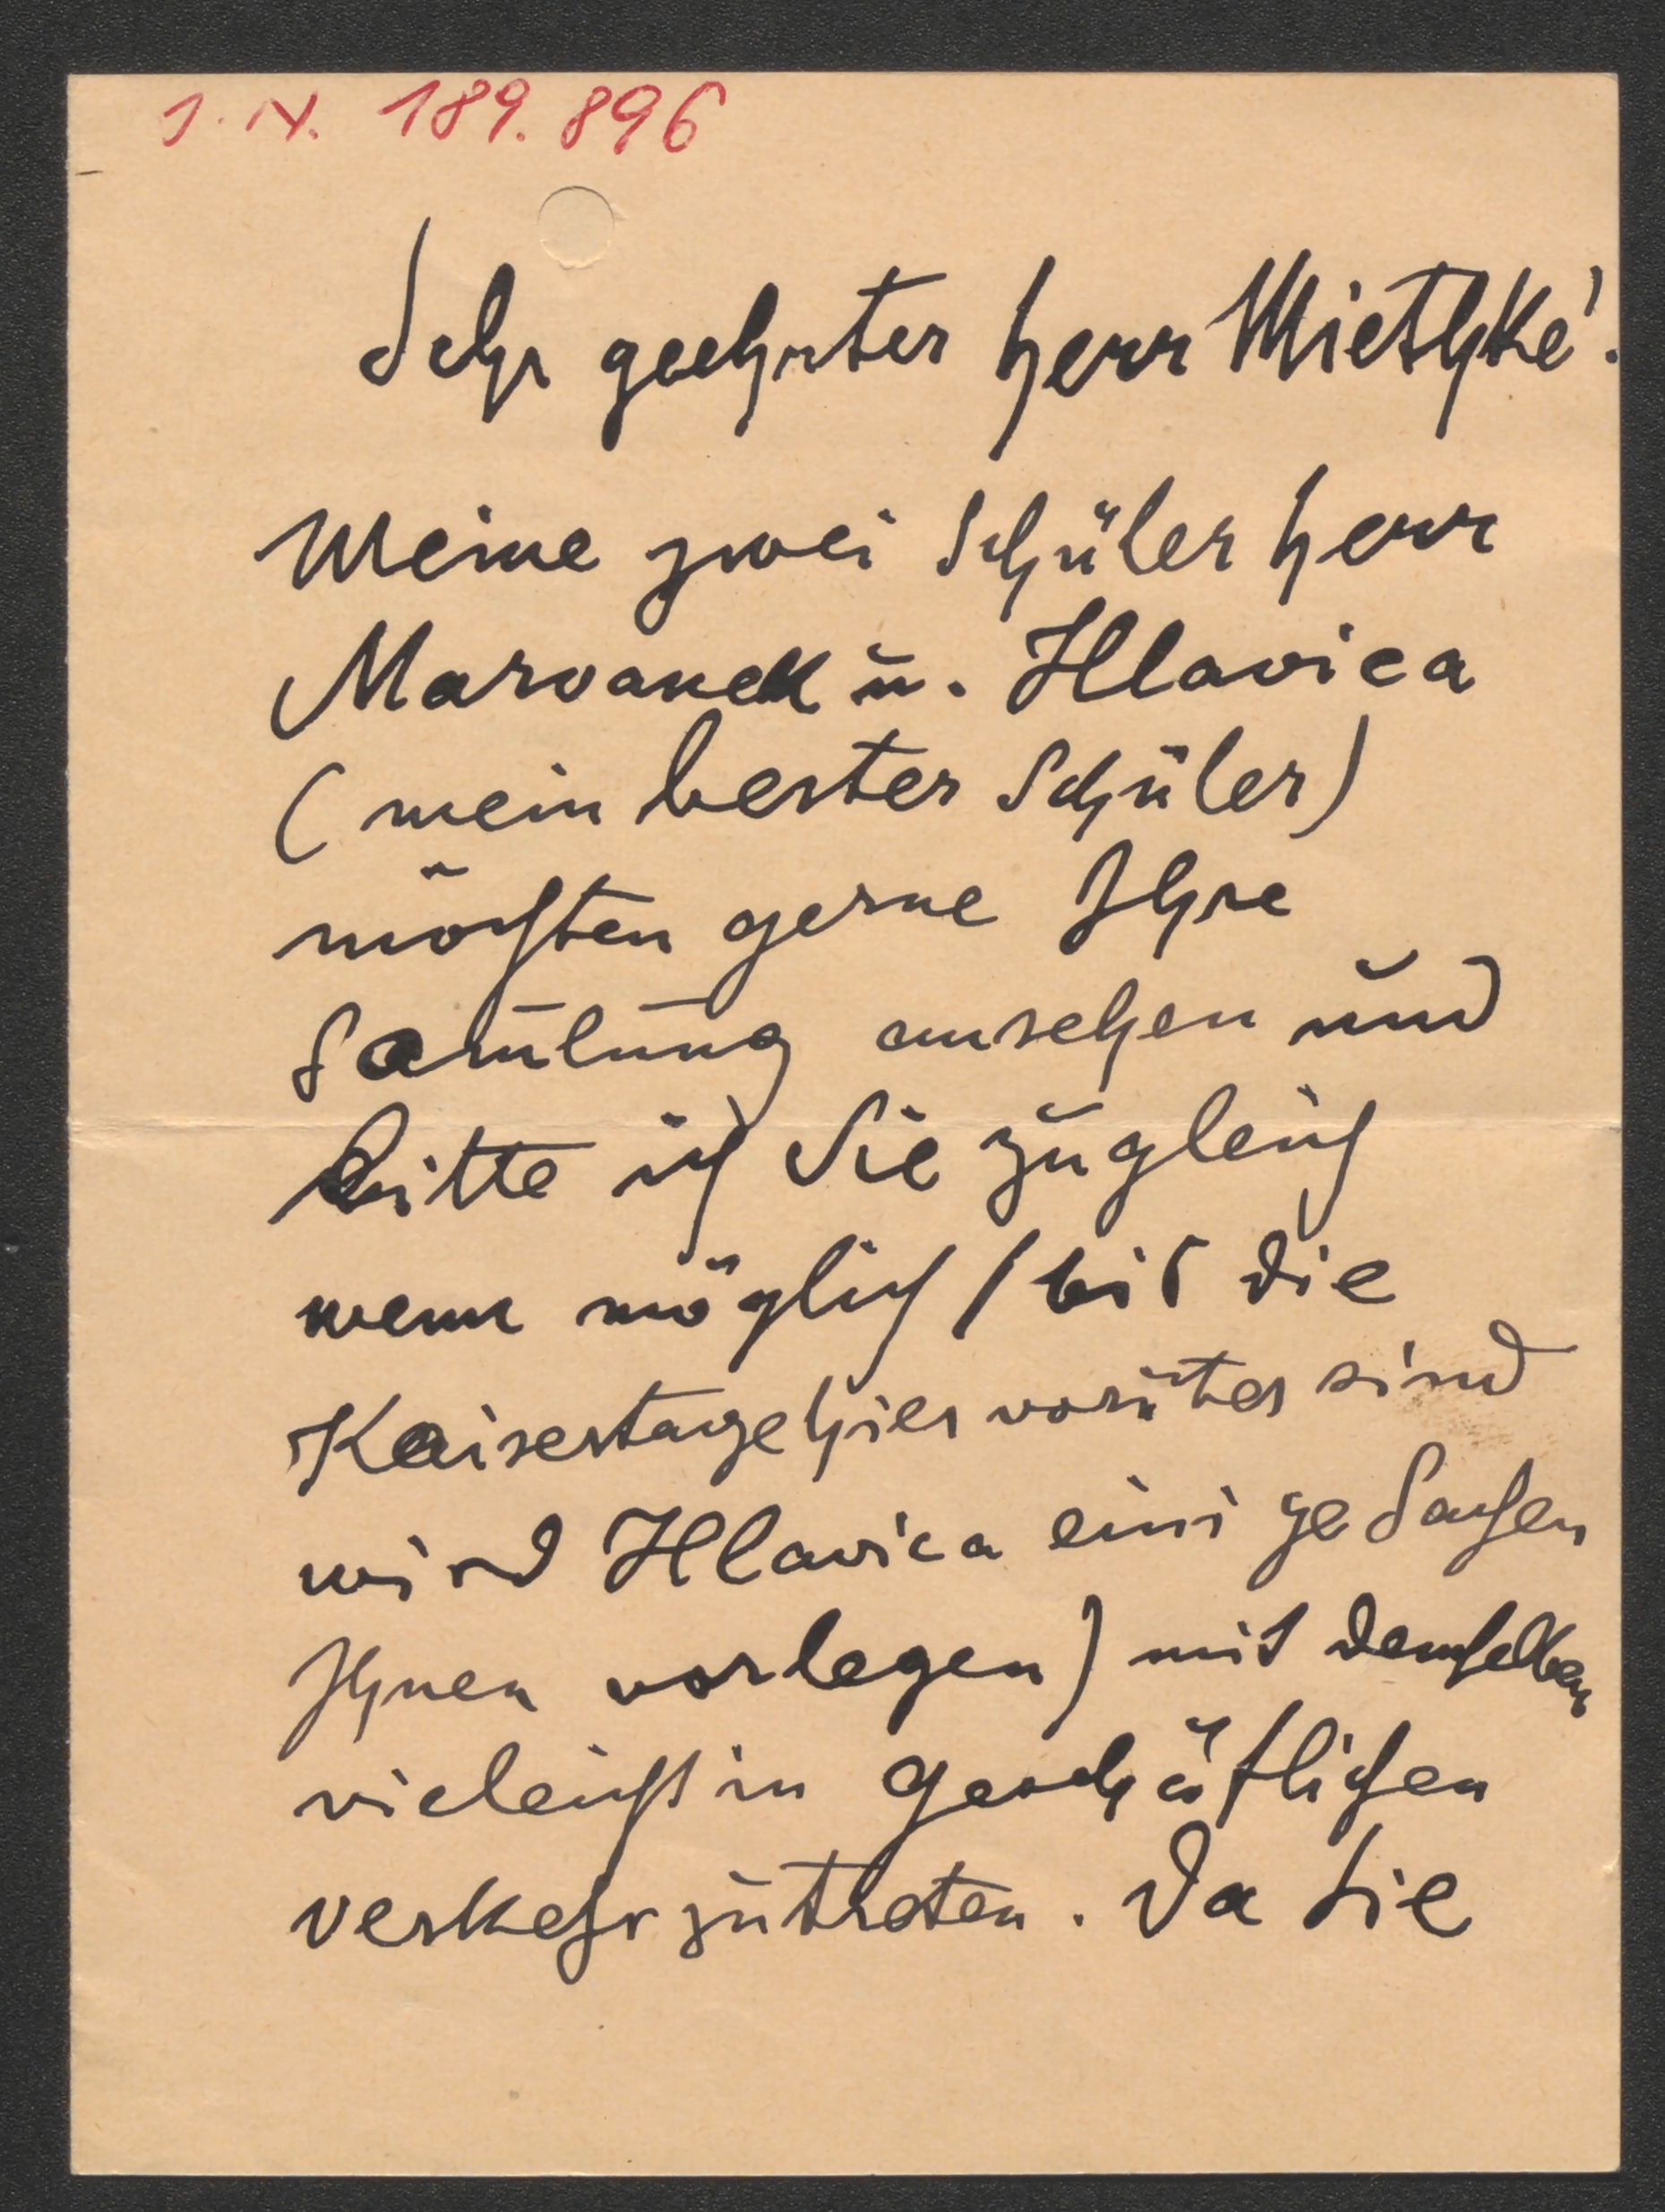 J. N. 189.896
Sehr geehrter Herr Miethke!
Meine zwei Schüler Herr
Marvanek u. Hlavica
(mein bester Schüler)
möchten gerne Ihre
Sam̅lung ansehen und
bitte ich Sie zugleich
wenn möglich (bis die
Kaisertage hier vorüber sind
wird Hlavica einige Sachen
Ihnen vorlegen) mit demselben
vieleicht in geschäftlichen
verkehr zu treten. Da Sie